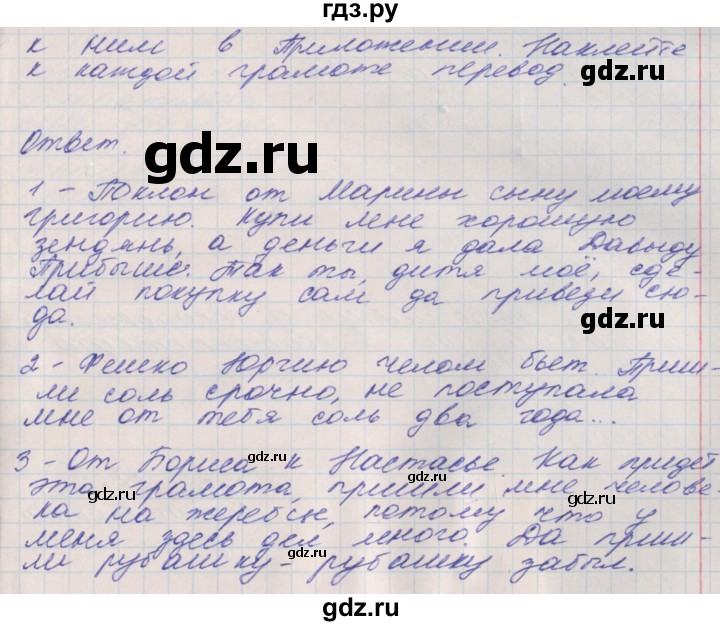 гдз.ру
к ним в Приложении. Наклейте
к каждой грамоте перевод.
gdz.ru
Ответ.
gdz.ru
1 - Поклон от Марины сыну моему
Григорию. Купи мне хорошую
зендянь, а деньги я дала Давыду
Прибыше. Так ты, дитя моё, сде-
лай покупку сам да приведи сю-
да.
gdz.ru
2 - Фешко Юргию челом бьет. Приш-
ли соль срочно, не поступала
мне от тебя соль два года...
3 - От Бориса к Настасье. Как придет
gdz.ru
эта грамота, пришли мне челове-
gdz.ru
gdz.ru
ка на жеребце, потому что у
меня здесь дел много. Да приш-
gdz.ru
gdz.ru
ли рубашку - рубашку забыл.
gdz.ru